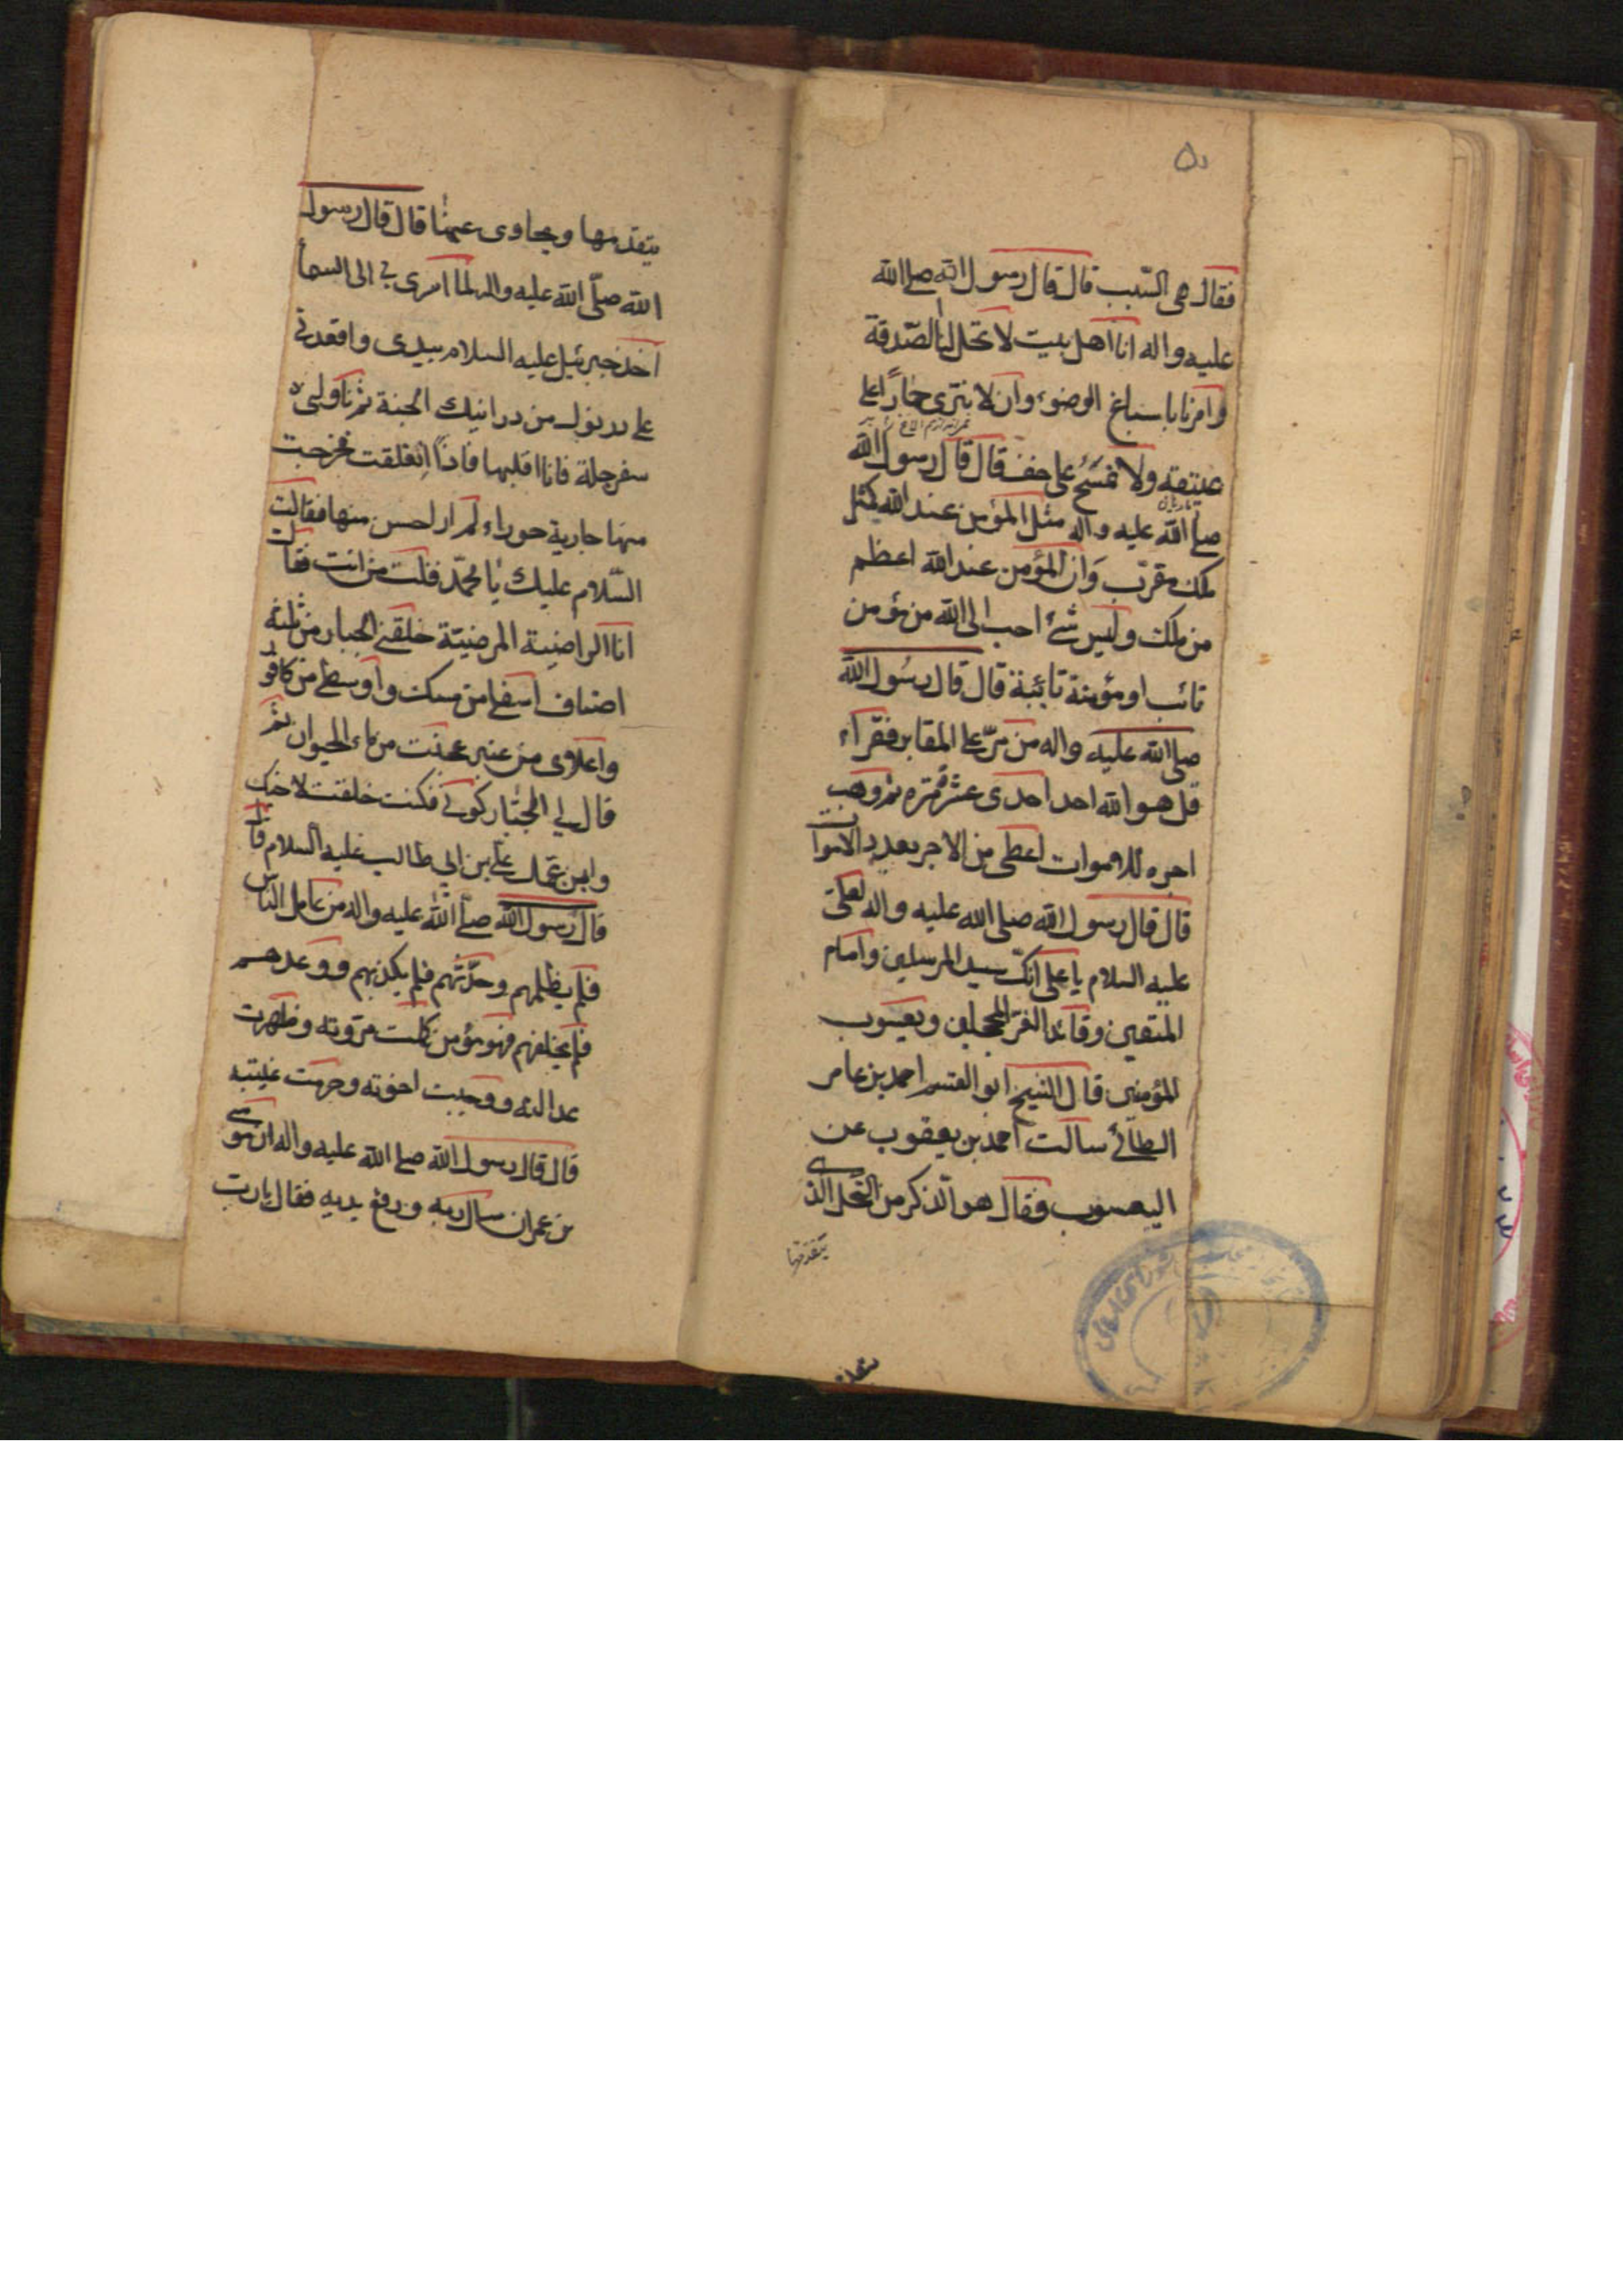 فقال هی الشیب قال قال رسول الله صلی الله
علیه واله انا اهل بیت لا تحل لنا الصّدقة
وامرنا باسباغ الوضوء وان لا ننزی حمارًا علی
عتیقه ولا نمسَحُ علی خف قال قال رسول الله
صلی الله علیه واله مثل المؤمن عند الله کمثل
ملک مقرّب وَان المؤمن عند الله اعظم
من ملک ولیس شئ احب الی الله من مؤمن
تائب او مؤمنة تائبة قال قال رسُول الله
صلی الله علیه واله من مرّ علی المقابر فقراء
قل هو الله احد احدی عشر مَرّه ثم وهب
اجره للاموات اعطی من الاجر بعدد الاموات
قال قال رسول الله صلی الله علیه واله لعلی
علیه السلام یا علی انک سید المرسلین وامام
المتقین وقائد الغرّ المحجلین ویعسوب
المؤمنین قال الشیخ ابو القسم احمد بن عامر
الطآئی سالت احمد بن یعقوب عن
الیعسوب فقال هو الذکر من النحل الذی
یتقدمها
یتقدمها ویحاوی عنها قال قال رسول
الله صلّی الله علیه واله لما اسری بی الی السمآ
اخذ جبرئیل علیه السلام بیدی واقعدنی
علی درنوک من درانیک الجنة ثم ناولنی
سفرجلة فانا اقلبها فاذًا انفلقت فخرجت
منها جاریة حوراء لم ار احسن منها فقالت
السّلام علیک یا محمّد فقلت من انت فقالت
انا الراضیة المرضیّة خلقنی الجبار من ثلثة
اصناف اسفلی من مسک واوسطی من کافور
واعلاوی من عنبر عجنت من ماء الحیوان ثم
قال لی الجبّار کونی فکنت خلقت لاخیک
وابن عمّک علی بن ابی طالب علیه السلام قال
قال رسول الله صلی الله علیه واله من عامل الناس
فلم یظلمهم وحدّثهم فلم یکذبهم ووعدهم
فلم یخلفهم فهو مؤمن کملت مروته وظهرت
عدالته ووجبت اخوته وحرمت غیبته
قال قال رسول الله صلی الله علیه واله ان موسی
بن عمران سال ربه ورفع یدیه فقال یا رب